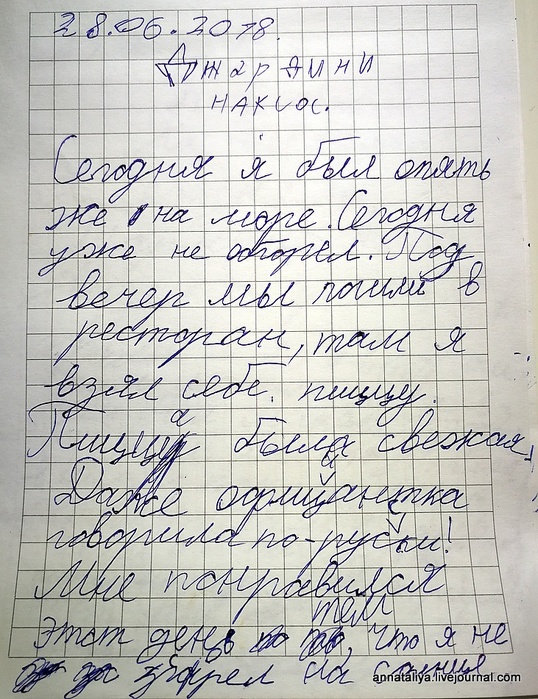 28.06.2018.
Джардини
наксос.
Сегодня я был опять
же на море. Сегодня
уже не обгорел. Под
вечер мы пошли в
ресторан, там я
взял себе пиццу.
Пицца была свежая,
Даже офицантка
говорила по-руски!
Мне понравился
тем
этот день, что я не
на солнце
annataliya.livejournal.com